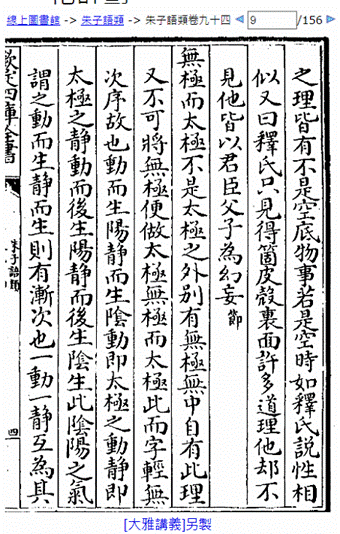 線上圖書館 -> 朱子語類 -> 朱子語類卷九十四 9 /156
之理皆有不是空底物事若是空時如釋氏說性相
似又曰釋氏只見得箇皮殼裏面許多道理他却不
見他皆以君臣父子為幻妄節
無極而太極不是太極之外别有無極無中自有此理
又不可將無極便做太極無極而太極此而字輕無
次序故也動而生陽静而生陰動即太極之動静即
太極之静動而後生陽静而後生陰生此陰陽之氣
謂之動而生静而生則有漸次也一動一静互為其
欽定四庫全書
朱子語類
四
[大雅講義]另製